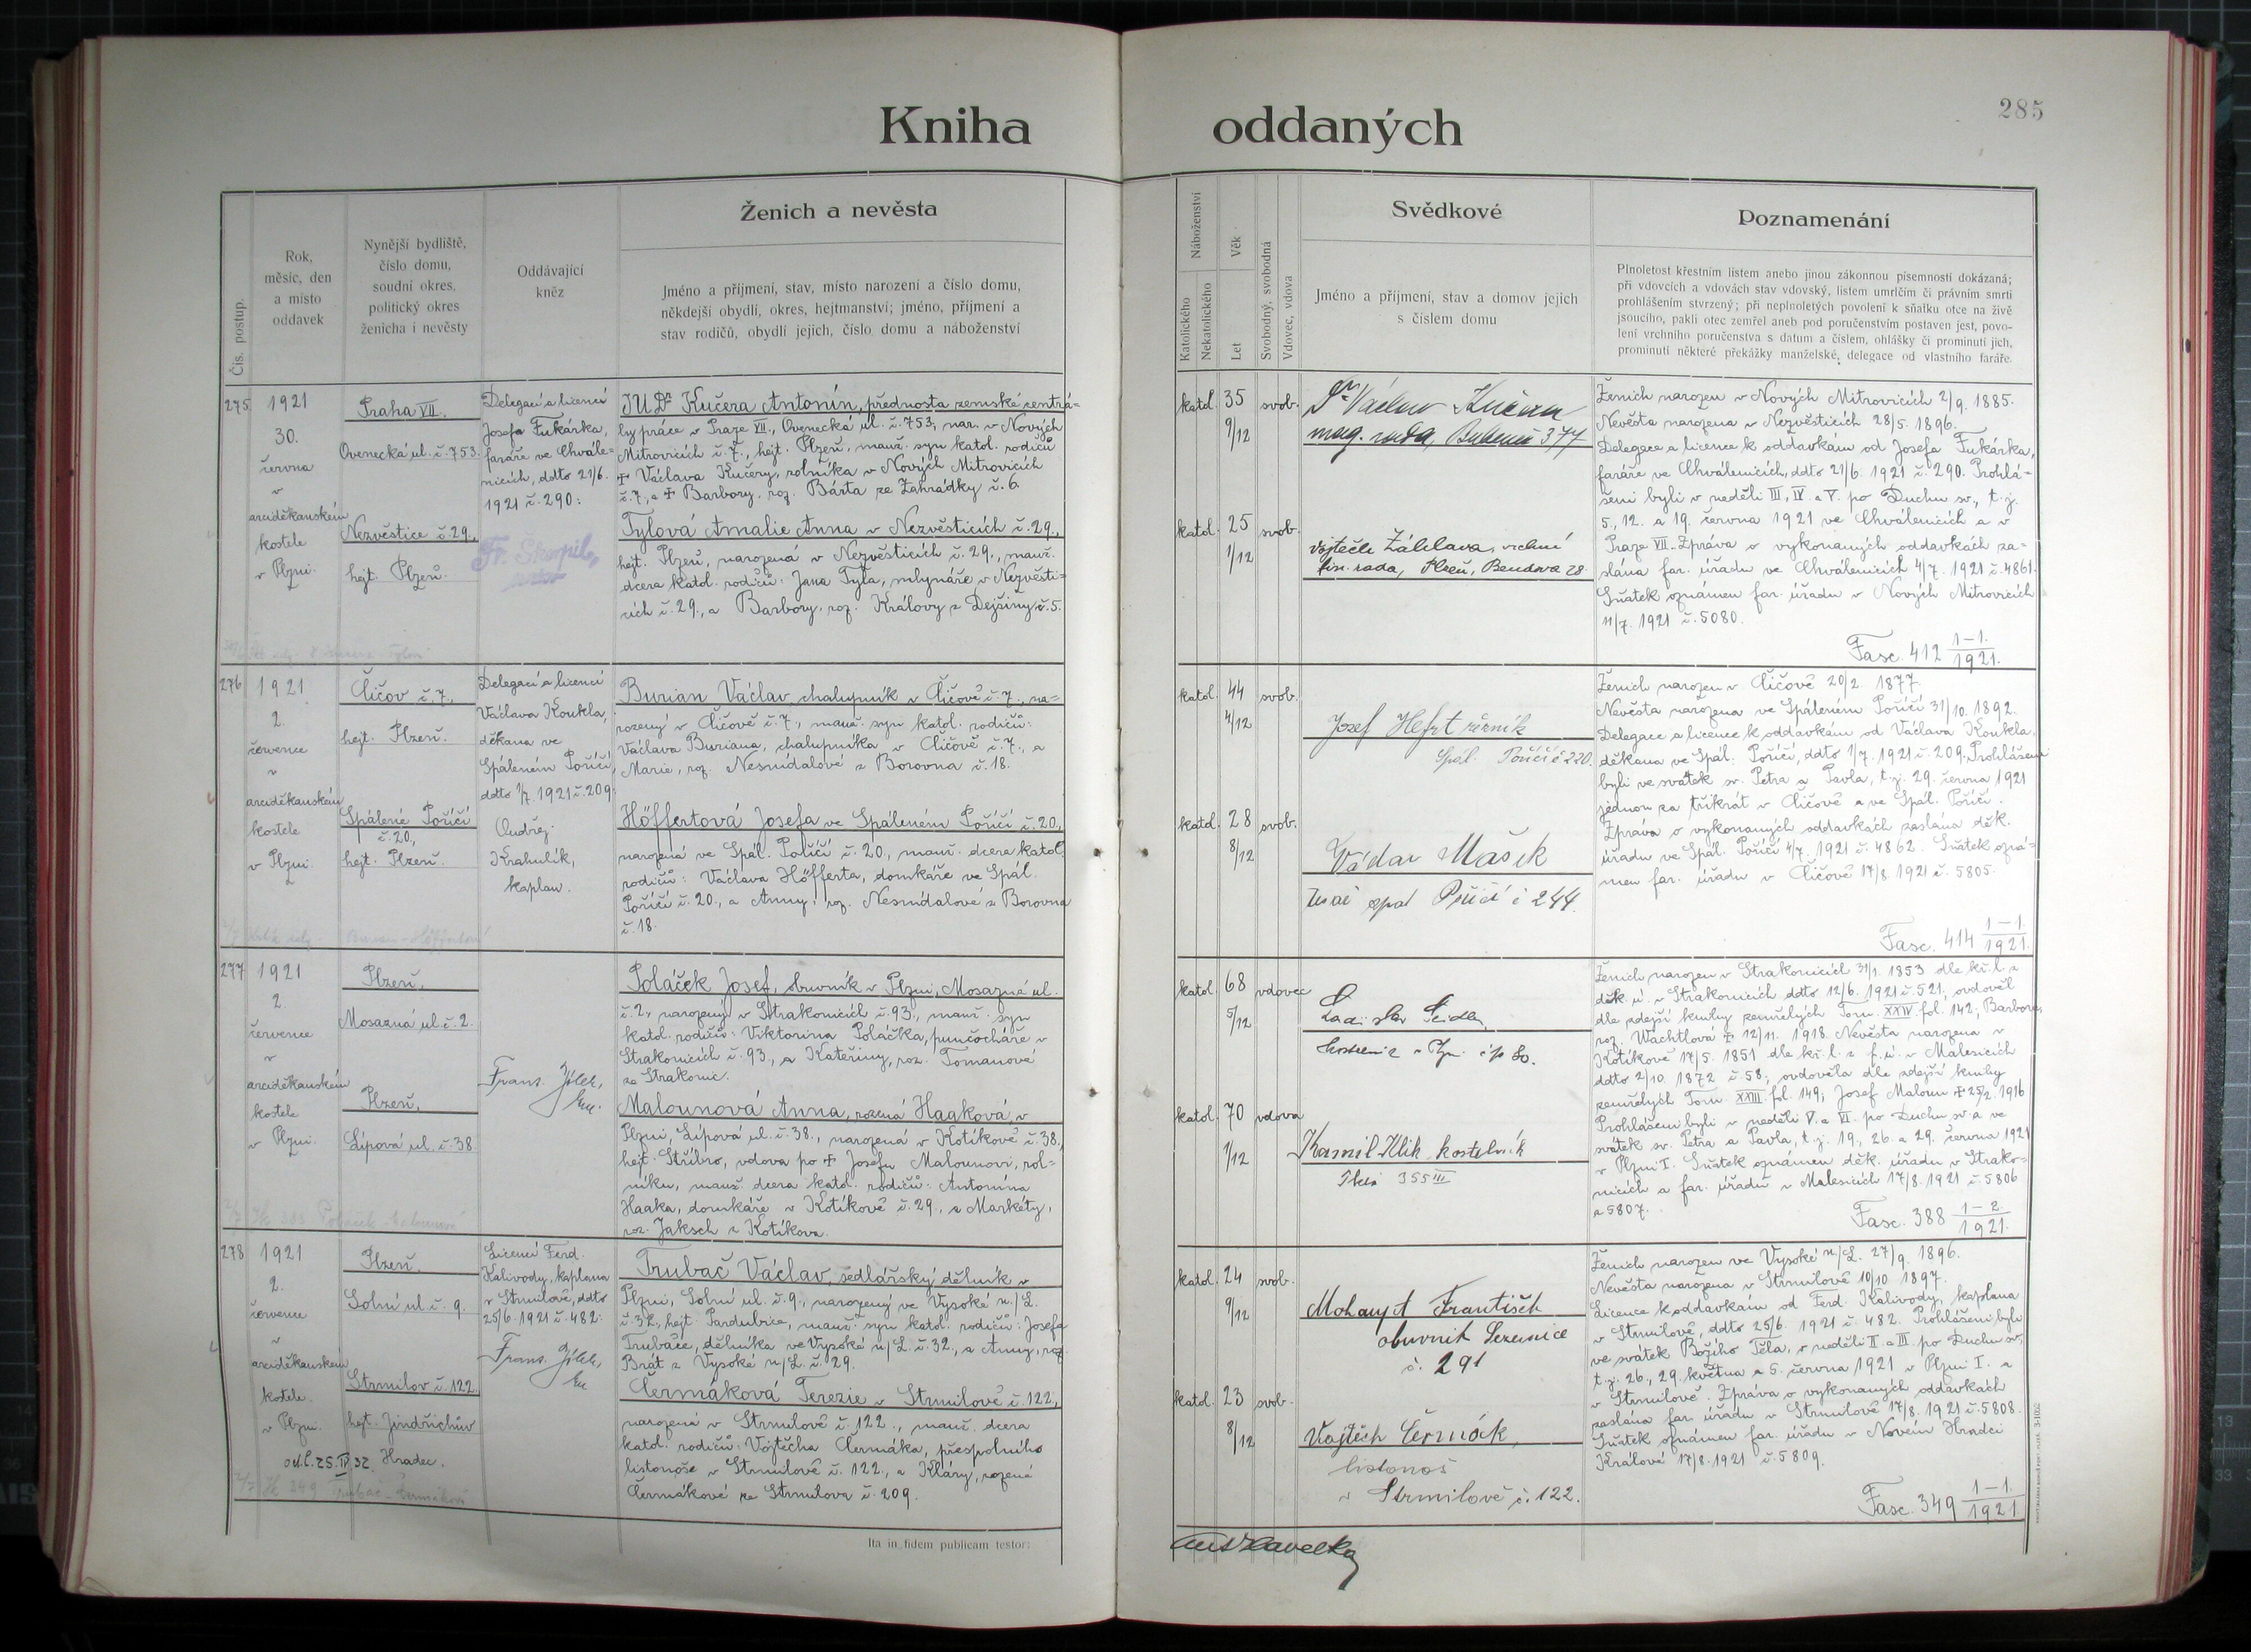 Kniha oddaných
285
Čís. postup.
Rok,
měsíc, den
a místo
oddavek
Nynější bydliště,
číslo domu,
soudní okres,
politický okres
ženicha i nevěsty
Oddávající
kněz
Ženich a nevěsta
Jméno a příjmení, stav, místo narození a číslo domu,
někdejší obydlí, okres, hejtmanství; jméno, příjmení a
stav rodičů, obydlí jejich, číslo domu a náboženství
Náboženství
Katolického
Nekatolického
Věk
Let
Svobodný, svobodná
Vdovec, vdova
Svědkové
Jméno a příjmení, stav a domov jejich
s číslem domu
Poznamenání
Plnoletost křestním listem anebo jinou zákonnou písemností dokázaná;
při vdovcích a vdovách stav vdovský, listem úmrtčím či právním smrti
prohlášením stvrzený; při neplnoletých povolení k sňatku otce na živě
jsoucího, pakli otec zemřel aneb pod poručenstvím postaven jest, povo-
lení vrchního poručenstva s datum a číslem, ohlášky či prominutí jich,
prominutí některé překážky manželské, delegace od vlastního faráře.
275
1921
30.
června
v
arciděkanském
kostele
v Plzni.
Praha VII.
Ovenecká ul. č. 753.
Nezvěstice č. 29.,
hejt. Plzeň.
Delegací a licencí
Josefa Fukárka,
faráře ve Chvále-
nicích, ddto 21/6.
1921 č. 290:
Fr. Škorpil,
JUDr Kučera Antonín, přednosta zemské centrá-
ly práce v Praze VII., Ovenecká ul. č. 753, nar. v Nových
Mitrovicích č. 7., hejt. Plzeň, manž. syn katol. rodičů
+ Václava Kučery, rolníka v Nových Mitrovicích
č. 7., a + Barbory, roz. Bárta ze Zahrádky č. 6.
Tylová Amalie Anna v Nezvěsticích č. 29.,
hejt. Plzeň, narozená v Nezvěsticích č. 29., manž.
dcera katol. rodičů: Jana Tyla, mlynáře v Nezvěsti-
cích č. 29., a Barbory, roz. Královy z Dejšiny č. 5.
katol. 35 svob.
9/12
katol. 25 svob.
1/12
Dr Václav Kučera
mag. rada, Bubeneč 377
Vojtěch Záhlava, vrchní
fin. rada, Plzeň, Bendova 28.
Ženich narozen v Nových Mitrovicích 2/9. 1885.
Nevěsta narozena v Nezvěsticích 28/5. 1896.
Delegace a licence k oddavkám od Josefa Fukárka,
faráře ve Chválenicích, ddto 21/6. 1921 č. 290. Prohlá-
šeni byli v neděli III, IV. a V. po Duchu sv., t. j.
5., 12. a 19. června 1921 ve Chválenicích a v
Praze VII. Zpráva o vykonaných oddavkách za-
slána far. úřadu ve Chválenicích 4/7. 1921 č. 4861.
Sňatek oznámen far. úřadu v Nových Mitrovicích
11/7. 1921 č. 5080.
Fasc. 412 1-1./1921.
276
1921
2.
července
v
arciděkanském
kostele
v Plzni.
Čičov č. 7.,
hejt. Plzeň.
Spálené Poříčí
č. 20,
hejt. Plzeň.
Delegací a licencí
Václava Koukla,
děkana ve
Spáleném Poříčí,
ddto 1/7. 1921 č. 209:
Ondřej
Krahulík,
kaplan.
Burian Václav, chalupník v Čičově č. 7., na-
rozený v Čičově č. 7., manž. syn katol. rodičů:
Václava Buriana, chalupníka v Čičově č. 7., a
Marie, roz. Nesnídalové z Borovna č. 18.
Höffertová Josefa ve Spáleném Poříčí č. 20,
narozená ve Spál. Poříčí č. 20., manž. dcera katol.
rodičů: Václava Höfferta, domkáře ve Spál.
Poříčí č. 20., a Anny, roz. Nesnídalové z Borovna
č. 18.
katol. 44 svob.
4/12
katol. 28 svob.
8/12
Josef Hefrt řezník
Spál. Poříčí č 220.
Václav Mašek
spál Poříčí č 244.
Ženich narozen v Čičově 20/2. 1877.
Nevěsta narozena ve Spáleném Poříčí 31/10. 1892.
Delegace a licence k oddavkám od Václava Koukla,
děkana ve Spál. Poříčí, ddto 1/7. 1921 č. 209. Prohlášeni
byli ve svátek sv. Petra a Pavla, t. j. 29. června 1921
jednou za třikrát v Čičově a ve Spál. Poříčí.
Zpráva o vykonaných oddavkách zaslána děk.
úřadu ve Spál. Poříčí 4/7. 1921 č. 4862. Sňatek ozná-
men far. úřadu v Čičově 17/8. 1921 č. 5805.
Fasc. 414 1-1./1921.
277
1921
2.
července
v
arciděkanském
kostele
v Plzni.
Plzeň,
Mosazná ul. č. 2.
Plzeň,
Lípová ul. č. 38
Franz. Jílek,
Poláček Josef, obuvník v Plzni, Mosazná ul.
č. 2., narozený v Strakonicích č. 93., manž. syn
katol. rodičů: Viktorina Poláčka, punčocháře v
Strakonicích č. 93., a Kateřiny, roz. Tomanové
ze Strakonic.
Malounová Anna, rozená Haaková, v
Plzni, Lípová ul. č. 38., narozená v Kotíkově č. 38,
hejt. Stříbro, vdova po + Josefu Malounovi, rol-
níku, manž. dcera katol. rodičů: Antonína
Haaka, domkáře v Kotíkově č. 29., a Markéty,
roz. Jaksch z Kotíkova.
katol. 68 vdovec
5/12
katol. 70 vdova
1/12
Kamil Klik, kostelník
355 III
Ženich narozen v Strakonicích 31/1. 1853 dle kř. l. z
děk. ú. v Strakonicích ddto 12/6. 1921 č. 521, ovdověl
dle zdejší knihy zemřelých Tom. XXIV fol. 142, Barbora,
roz. Wachtlová + 12/11. 1918. Nevěsta narozena v
Kotíkově 17/5. 1851 dle kř. l. z f. ú. v Malesicích
ddto 2/10. 1872 č. 58; ovdověla dle zdejší knihy
zemřelých Tom. XXIII fol. 149, Josef Maloun + 25/2. 1916
Prohlášeni byli v neděli V. a VI. po Duchu sv. a ve
svátek sv. Petra a Pavla, t. j. 19., 26. a 29. června 1921
v Plzni I. Sňatek oznámen děk. úřadu v Strako-
nicích a far. úřadu v Malesicích 17/8. 1921 č. 5806
a 5807.
Fasc. 388 1-2/1921.
278
1921
2.
července
v
arciděkanském
kostele.
v Plzni.
Plzeň.
Solní ul. č. 9.
Strmilov č. 122.
hejt. Jindřichův
Hradec.
Licencí Ferd.
Kalivody, kaplana
v Strmilově, ddto
25/6. 1921 č. 482:
Franz. Jílek,
Trubač Václav, sedlářský dělník v
Plzni, Solní ul. č. 9., narozený ve Vysoké n./L.
č. 32., hejt. Pardubice, manž. syn katol. rodičů: Josefa
Trubače, dělníka ve Vysoké n/L. č. 32., a Anny, roz.
Brát z Vysoké n/L. č. 29.
Čermáková Terezie v Strmilově č. 122,
narozená v Strmilově č. 122., manž. dcera
katol. rodičů: Vojtěcha Čermáka, přespolního
listonoše v Strmilově č. 122., a Kláry, rozené
Čermákové ze Strmilova č. 209.
katol. 24 svob.
9/12
katol. 23 svob.
8/12
František
obuvník Sezemice
č. 291
Vojtěch Čermák,
listonoš
v Strmilově č. 122.
Ženich narozen ve Vysoké n/L. 27/9. 1896.
Nevěsta narozena v Strmilově 10/10. 1897.
Licence k oddavkám od Ferd. Kalivody, kaplana
v Strmilově, ddto 25/6. 1921 č. 482. Prohlášeni byli
ve svátek Božího Těla, v neděli II. a III. po Duchu sv.,
t. j. 26., 29. května a 5. června 1921 v Plzni I. a
v Strmilově. Zpráva o vykonaných oddavkách
zaslána far. úřadu v Strmilově 17/8. 1921 č. 5808.
Sňatek oznámen far. úřadu v Novém Hradci
Králové 17/8. 1921 č. 5809.
Fasc. 349 1-1./1921.
Ita in fidem publicam testor: